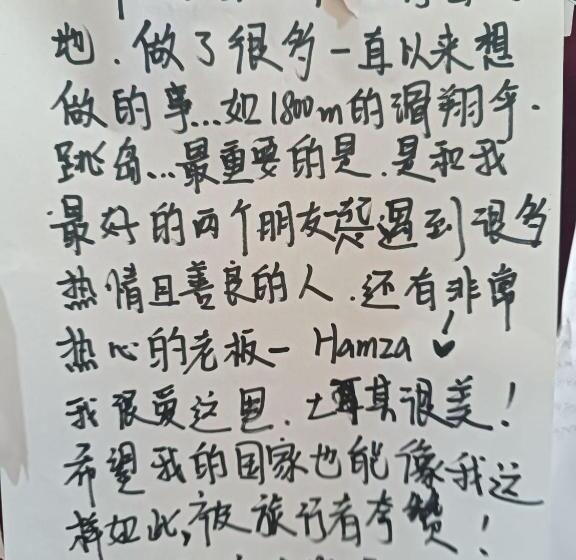 地.做了很多一直以来想
做的事...如1800m的滑翔伞.
跳岛...最重要的是.是和我
最好的两个朋友一起遇到很多
热情且善良的人.还有非常
热心的老板— Hamza
我很爱这里.土耳其很美!
希望我的国家也能像我这
样如此,被旅行者夸赞!